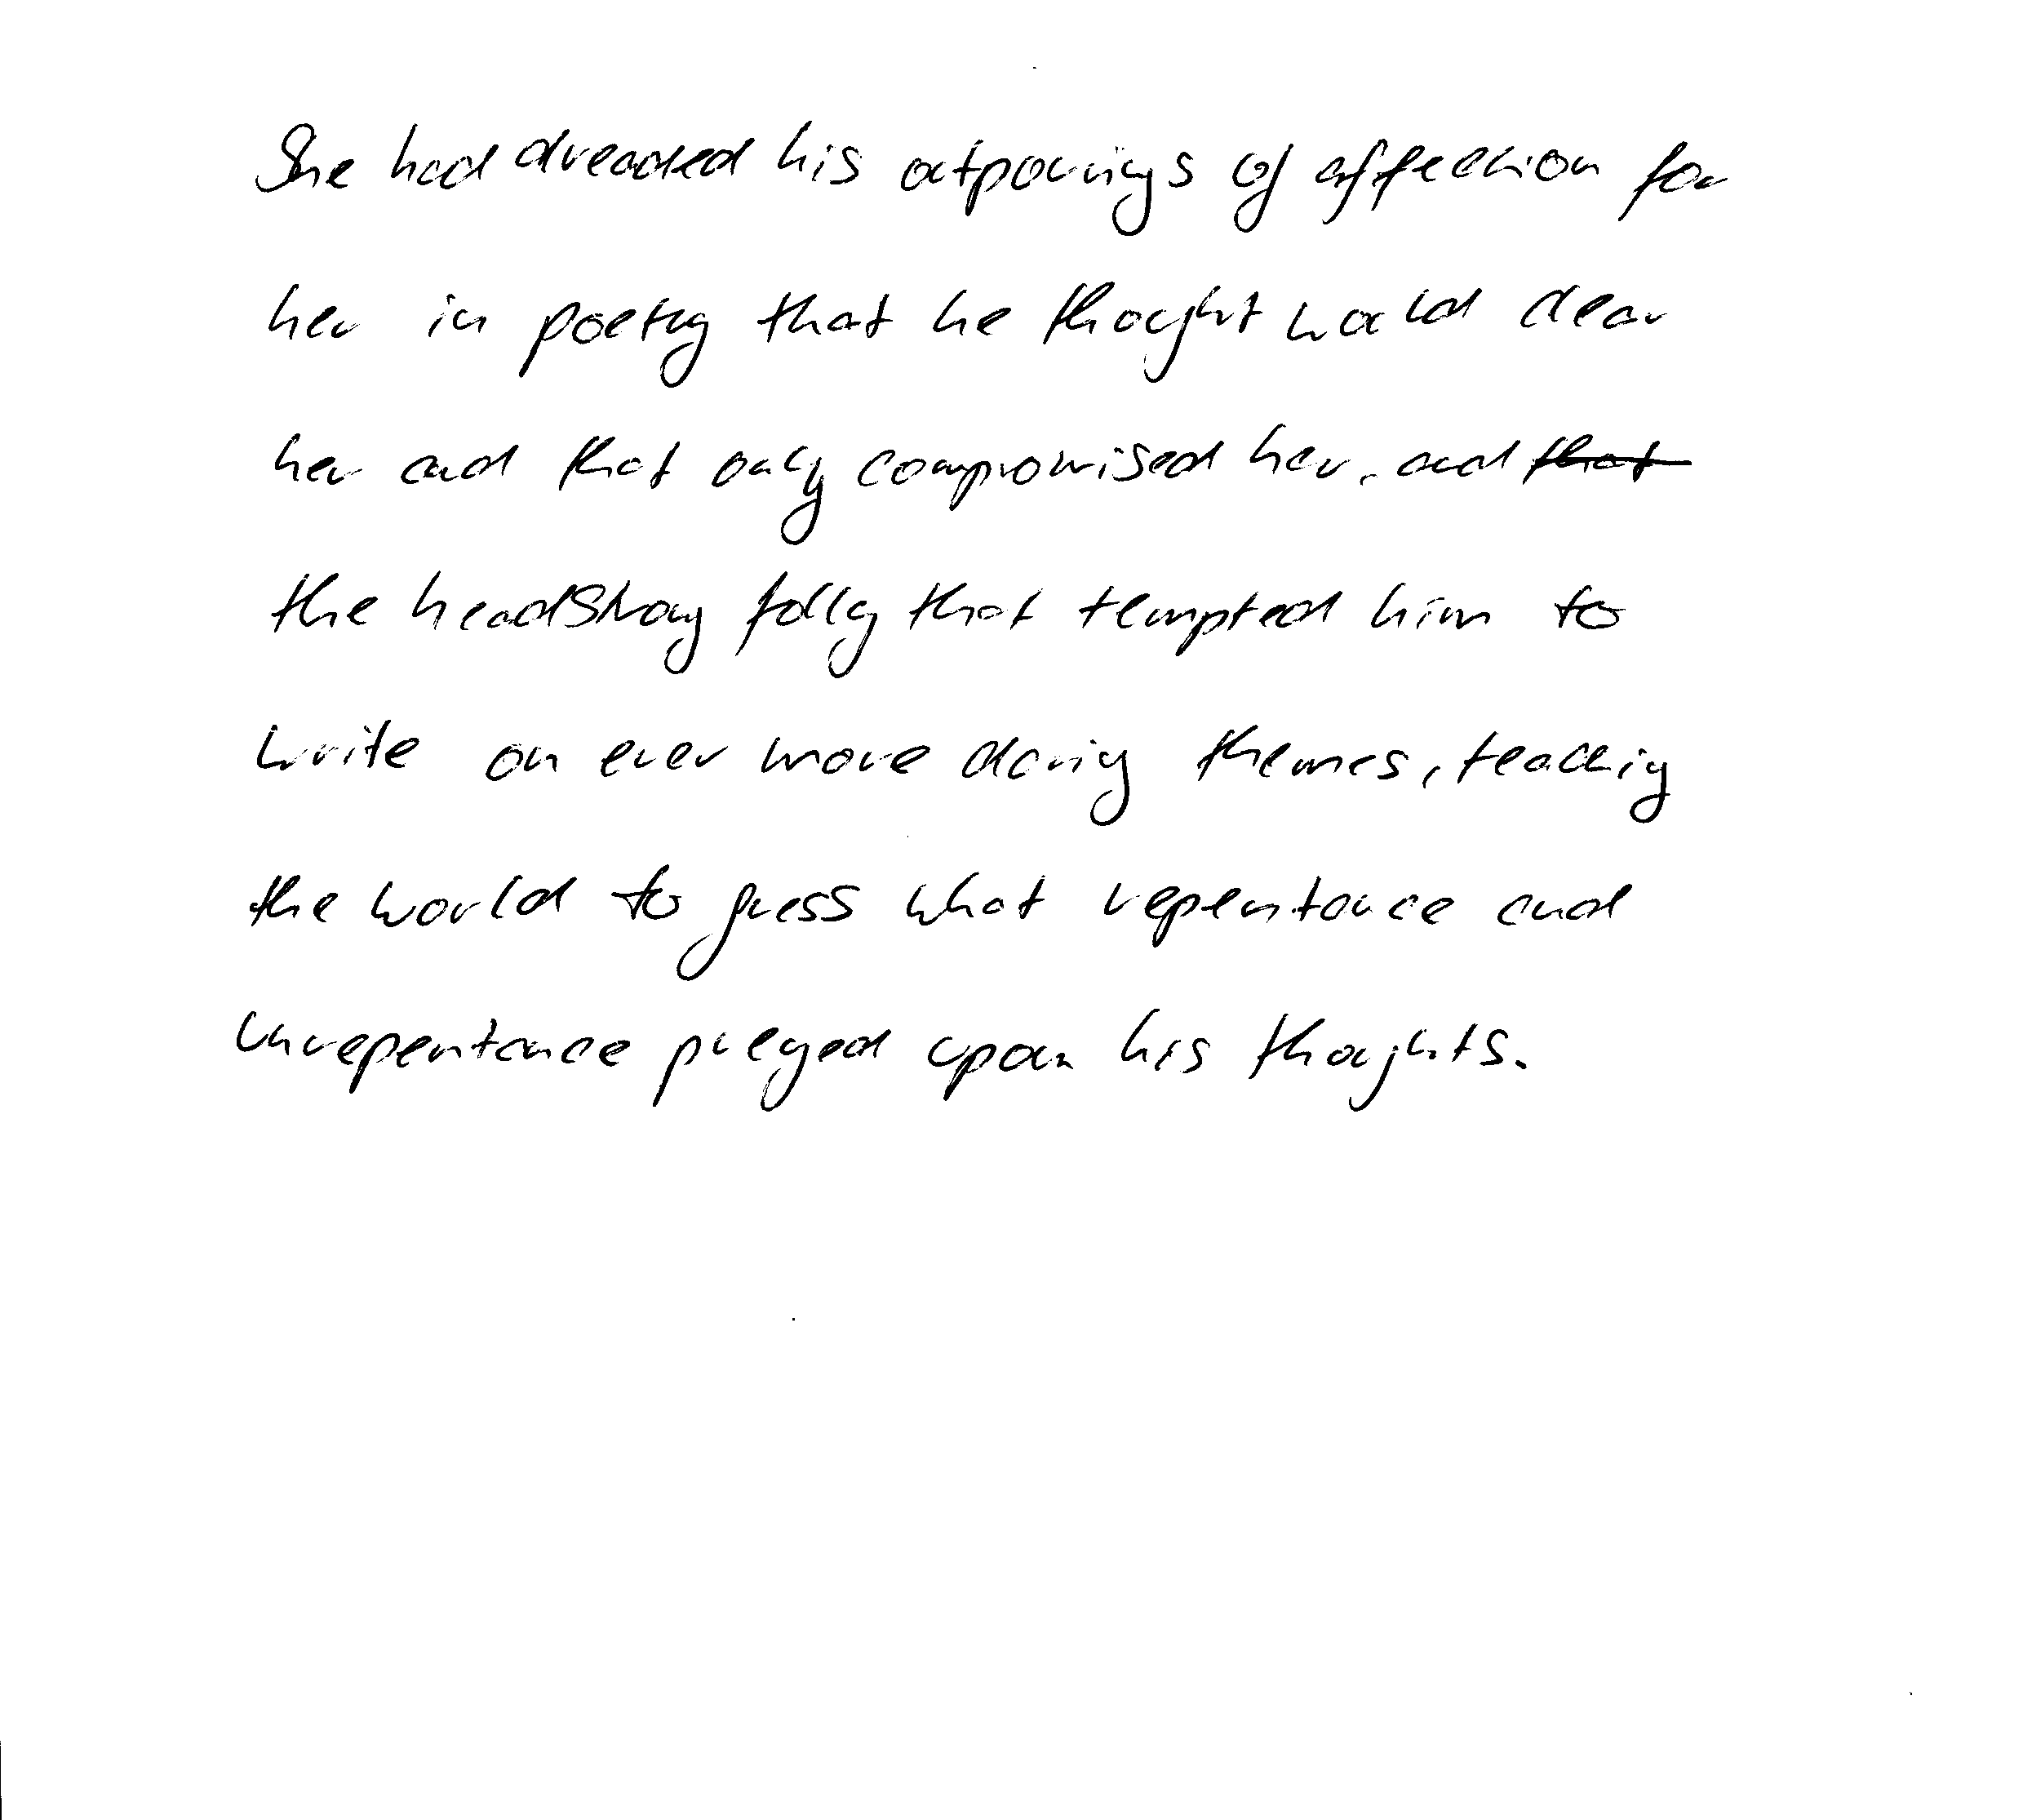 She had dreaded his outpourings of affection for
her in poetry that he thought would clear
her and that only compromised her, and
the headstrong folly that tempted him to
write on ever more daring themes, teaching
the world to guess what repentance and
unrepentance preyed upon his thoughts.